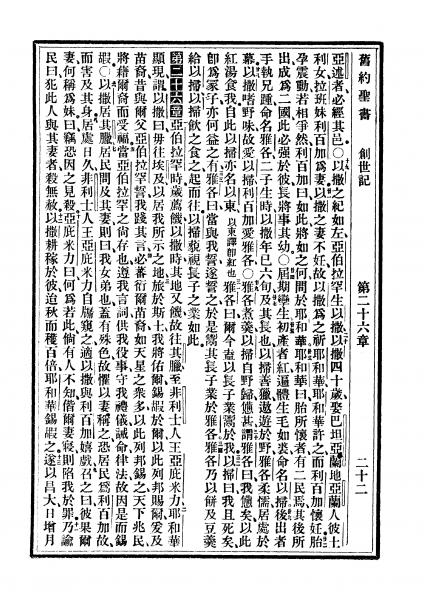 舊約聖書 創世記 第二十六章 二十二
亞述者必經其邑○以撒之紀如左亞伯拉罕生以撒以撒四十歲娶巴坦亞蘭地亞蘭人彼土
利女拉班妹利百加爲妻以撒之妻不妊故以撒爲之祈耶和華耶和華許之而利百加懷妊胎
孕震動若相爭然利百加曰如此將如之何問於耶和華耶和華曰胎所懷者有二民焉其後所
出成爲二國此必強於彼長將事其幼○屆期孿生初產者紅遍體生毛如裘命名以掃後出者
手執兄踵命名雅各二子生時以撒年已六旬及其長也以掃善獵遨遊於野雅各柔懦居處於
幕以撒嗜野味故愛以掃利百加愛雅各○雅各煮羹以掃自野歸憊甚謂雅各曰我憊矣以此
紅湯食我自此以掃亦名以東以東譯卽紅也雅各曰爾今盍以長子業鬻於我以掃曰我且死矣
卽爲冢子亦何益之有雅各曰當與我誓遂誓之於是鬻其長子業於雅各雅各乃以餅及豆羹
給以掃以掃飲之食之起而往以掃藐視長子之業如此
第二十六章亞伯拉罕時歲薦饑以撒時其地又饑故往其臘至非利士人王亞庇米力耶和華
顯現諭以撒曰毋往埃及以居我所示之地旅於斯土我將佑爾錫嘏於爾以此列邦賜爾爰及
苗裔昔與爾父亞伯拉罕誓我踐其言必蕃衍爾苗裔如天星之衆多以此列邦錫之天下兆民
將藉爾裔而受福當亞伯拉罕之尚存也遵我言詞供我役事守我禮儀誡命律法故因是而錫
嘏○以撒居其臘居民問及其妻則曰我女弟也蓋有殊色故懼以妻稱之恐居民爲利百加故
而害及其身居處日久非利士人王亞庇米力自牖窺之適以撒與利百加嬉戲召之曰彼果爾
妻何稱爲妹曰竊恐因之見殺亞庇米力曰何爲若此倘有人不知偕爾妻寢則陷我於罪乃諭
民曰犯此人與其妻者殺無赦以撒耕稼於彼迨秋而穫百倍耶和華錫嘏之遂以昌大日增月